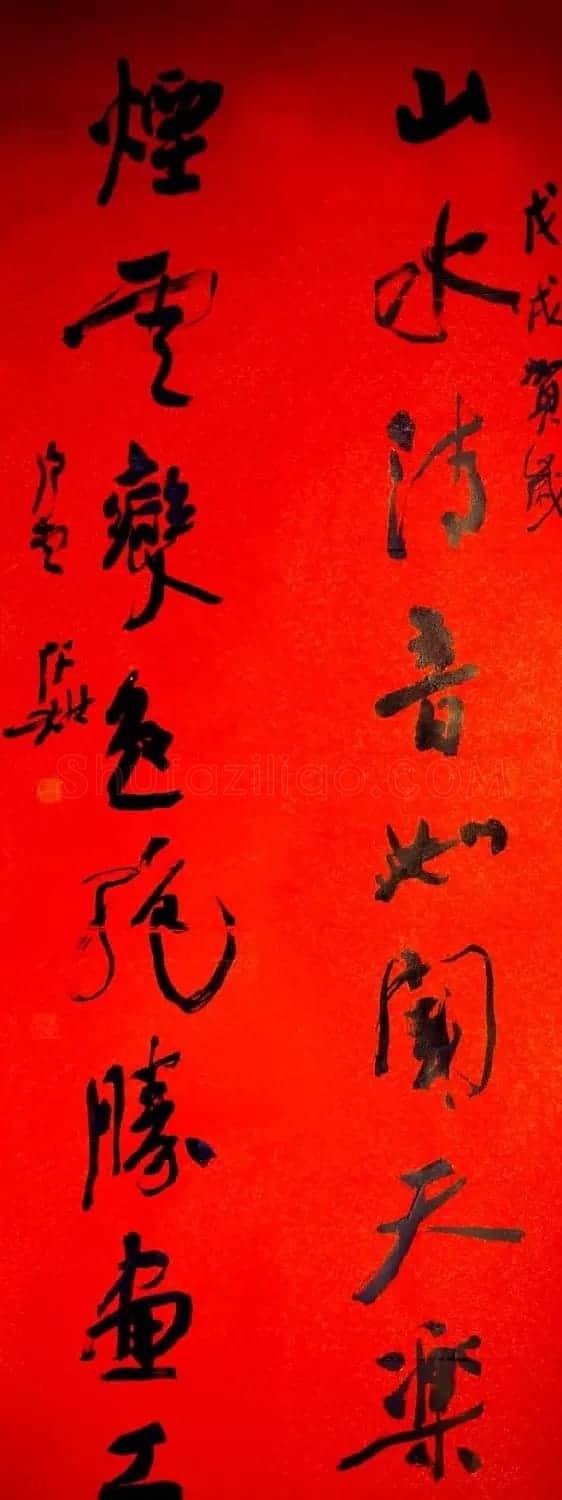 戊戌賀歲
山水清音如聞天樂
煙雲變色絕勝畫工
Shufaziliao.COM